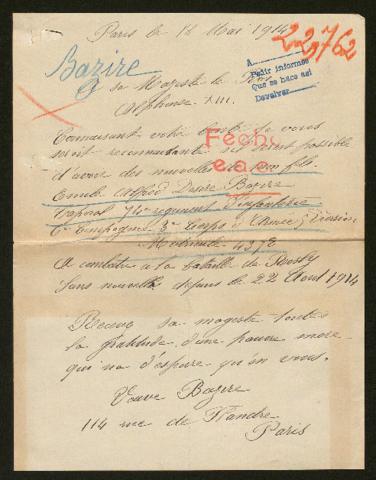 Paris le 18 Mai 1917
22762
Bazire
A
Pedir informes
Que se hace asi
Devolver
sa Majesté le Roi
Alphonse XIII.
Connaisant votre bonté je vous
serait reconnaisante
Fecho
d'avoir des nouvelles de mon fils
e.a.c.
Emile Alfred Desire Bazire
Caporal 74e regiment d'infanterie
6e Compagnie 3e Corps d'Armée 5 Division
Matricule 4372
A combatu a la bataille de
sans nouvelle depuis de 22 Aout 1914
Recevez sa majesté toute
la gratitude d'une pauvre mere
qui na d'espoire qu'en vous.
Veuve Bazire
114 rue de Flandre
Paris